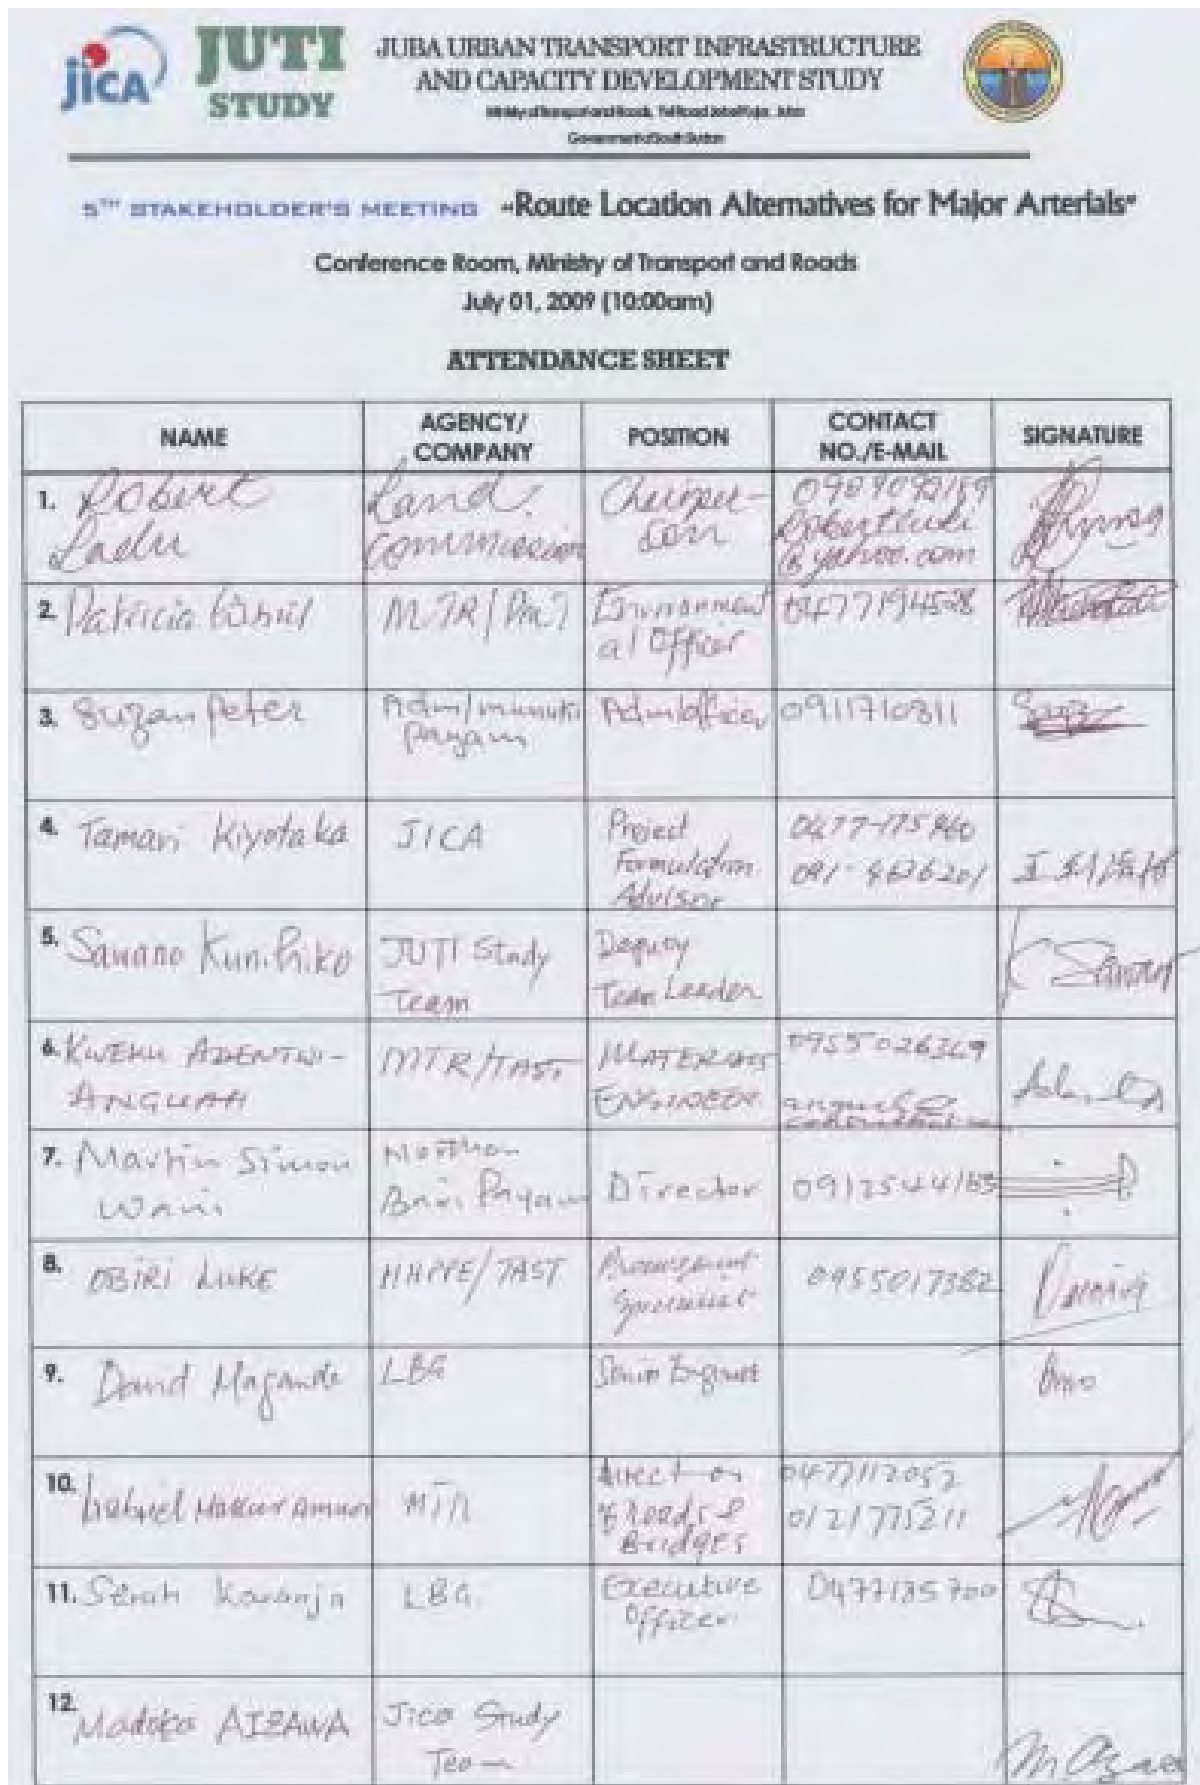 jICA
JUTI
STUDY
JUBA URBAN TRANSPORT INFRASTRUCTURE
AND CAPACITY DEVELOPMENT STUDY
Government of South Sudan
5TH STAKEHOLDER'S MEETING "Route Location Alternatives for Major Arterials"
Conference Room, Ministry of Transport and Roads
July 01, 2009 (10:00am)
ATTENDANCE SHEET
NAME
AGENCY/
COMPANY
POSITION
CONTACT
NO./E-MAIL
SIGNATURE
1. Robert
Ladu
Land
Commission
Chairper-
son
@yahoo.com
2. Patricia
Environment
al Officer
3. Suzan Peter
Adm/munuki
Payam
Adm/officer
0911710311
4. Tamari Kiyotaka
JICA
Project
Formulation
Advisor
5. Sawano Kunihiko
JUTI Study
Team
Deputy
Team Leader
K Sawano
6. KWEKU ADENTWI-
ANGUAH
MTR/TAST
MATERIALS
ENGINEER
0955026369
7. Martin Simon
Wani
Northern
Bari Payam
Director
8. OBIRI LUKE
MHPPE/TAST
Procurement
Specialist
0955017382
9. David Magande
LBG
Senior Engineer
10. Gabriel Makur Amuor
MTR
Director
of Roads &
Bridges
0477112052
0121775211
11. Serah Karanja
LBG
Executive
Officer
0477135700
12. Madoka AIZAWA
Jica Study
Team